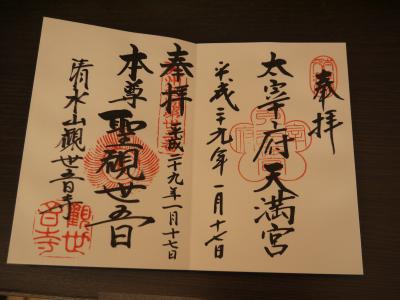 奉拝
太宰府天満宮
平成二十九年一月十七日
奉拝
平成二十九年一月十七日
本尊 聖観世音
清水山観世音寺
觀世音寺